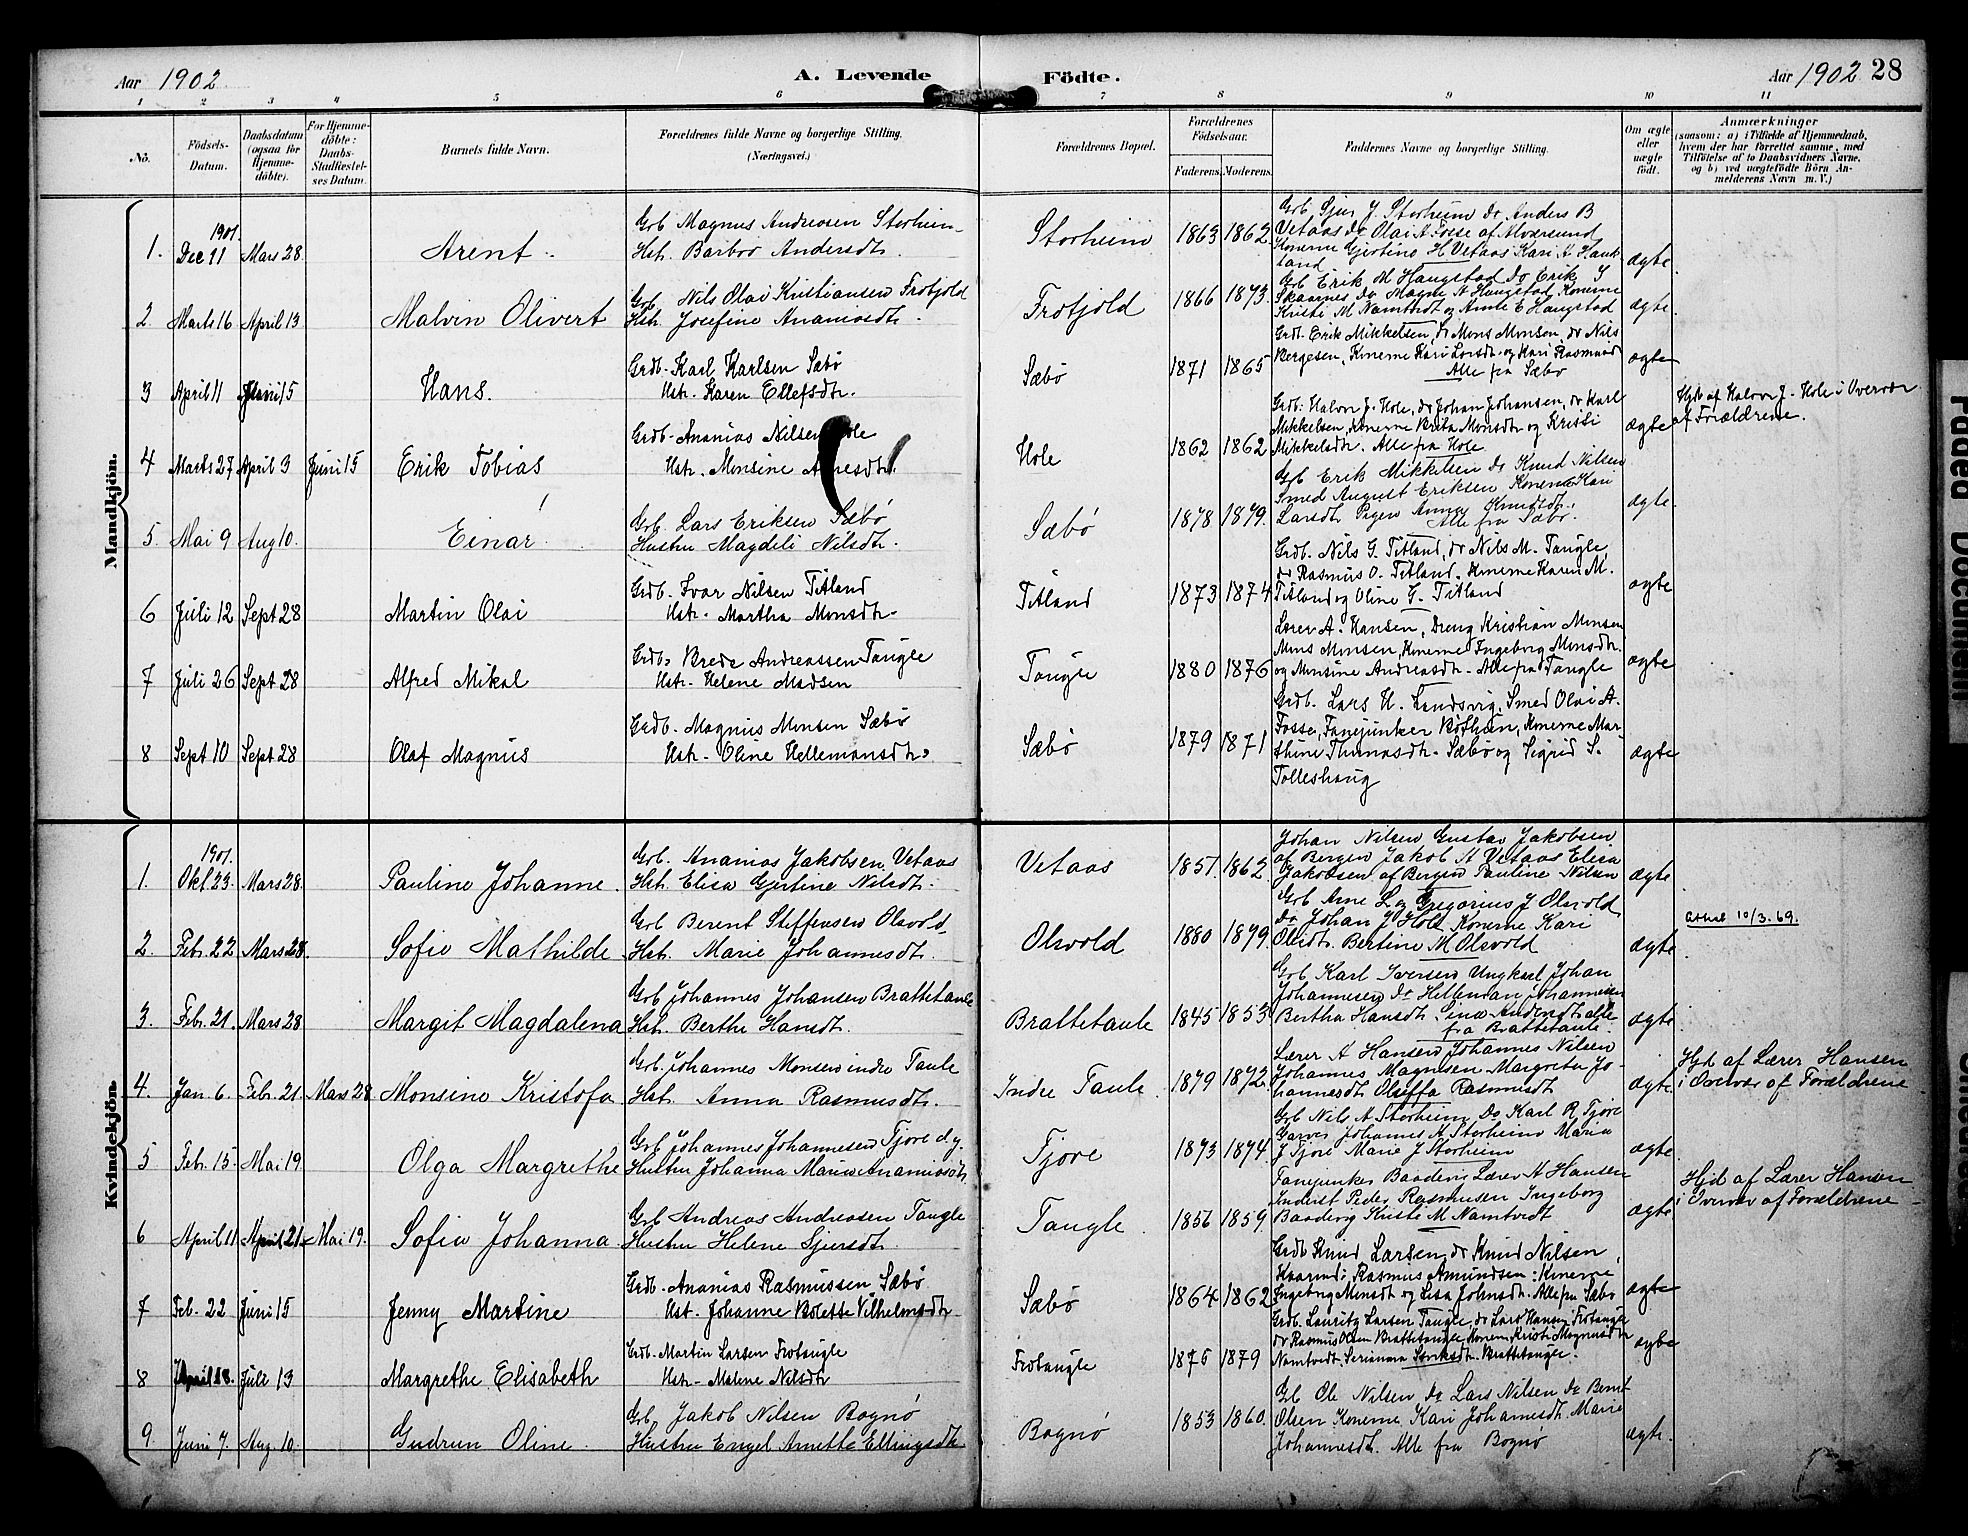 Aar 1902
A. Levende Födte.
Aar 1902 28
1 2 3 4 5 6 7 8 9 10 11
No.
Födsels-Datum.
Daabsdatum (ogsaa for Hjemme-döbte).
For Hjemme-döbte: Daabs-Stadfæstel-ses Datum.
Barnets fulde Navn.
Forældrenes fulde Navne og borgerlige Stilling. (Næringsvei.)
Forældrenes Bopæl.
Forældrenes Födselsaar.
Faderens. Moderens.
Faddernes Navne og borgerlige Stilling.
Om ægte eller uægte födt.
Anmærkninger
(saasom: a) i Tilfælde af Hjemmedaab,
hvem der har forrettet samme, med
Tilföielse af to Daabsvidners Navne,
og b) ved uægtefödte Börn An-
melderens Navn m. V.)
Mandkjön.
1. 1901 Dec 11 Mars 28 Arent.
Grb Magnus Andreasen Storheim
Hst. Barbro Andersdt.
Storheim 1863 1862
Grb Sjur J. Storheim do Anders B
Vetaas do Olai A Fosse af Alversund
Konerne Gjertine H Vetaas Kari A Hauk-
land
ægte
2 Marts 16 April 13 Malvin Olivert
Grb Nils Olai Kristiansen Frotjold
Hst. Josefine Ananiasdt.
Frotjold 1866 1873.
Grb Erik M Haugstad do Erik S
Skaarnes do Magne A Haugstad Konerne
Kristi M Namtvedt og Anne E Haugstad
ægte
3 April 11 Juni 15 Hans.
Grdb. Karl Karlsen Sæbø
Hst. Karen Ellefsdt.
Sæbø 1871 1865
Grdb. Erik Mikkelsen, do Mons Monsen, do Nils
Bergesen, Konerne Kari Larsdt. og Kari Rasmusdt
Alle fra Sæbø
ægte
4 Marts 27 April 3 Juni 15 Erik Tobias
Grdb. Ananias Nilsen Hole
Hst. Monsine
Hole 1862 1862
Grdb. Halvor J. Hole, do Johan Johansen, do Karl
Mikkelsen, Konerne Brita Monsdt og Kristi
Mikkelsdt. Alle fra Hole
ægte
Hjd. af Halvor J. Hole i Overvær
af Forældrene.
5. Mai 9 Aug 10. Einar
Grb. Lars Eriksen Sæbø
Hustru Magdeli Nilsdt.
Sæbø 1878 1879.
Grb Erik Mikkelsen do Knud Nilsen
Smed August Eriksen Konerne Kari
Larsdt. Pigen Anna Knudsdt.
Alle fra Sæbø.
ægte.
6 Juli 12 Sept 28 Martin Olai
Grdb. Ivar Nilsen Titland
Hst. Martha Monsdt.
Titland 1873 1874
Grdb. Nils G. Titland, do Nils M. Tangle,
do Rasmus O. Titland. Konerne Karen M.
Titland og Oline G. Titland
ægte
7 Juli 26 Sept 28 Alfred Mikal
Grdb. Brede Andreassen Tangle
Hst. Helene Madsen
Tangle 1880 1876
Lærer A. Hansen, Dreng Kristian Monsen
Mons Monsen, Konerne Ingeborg Monsdt.
og Monsine Andreasdt. Alle fra Tangle
ægte
8 Sept 10 Sept 28 Olaf Magnus
Grdb. Magnus Monsen Sæbø
Hst. Oline Hellemansdt.
Sæbø 1879 1871
Grdb. Lars H. Landsvig, Smed Olai A.
Fosse, Fanejunker Bothun, Konerne Mar-
thine Thomasdt. Sæbø og Sigrid S.
Tolleshaug
ægte
Kvindekjön.
1. 1901. Okt. 23. Mars 28. Pauline Johanne.
Grb. Ananias Jakobsen Vetaas
Hst. Elisa Gjertine Nilsdt.
Vetaas 1857. 1862.
Johan Nilsen Gustav Jakobsen
af Bergen Jakob A Vetaas Elisa
Jakobsen af Bergen Pauline Nilsen
ægte
2. Febr. 22 Mars 28. Sofie Mathilde.
Grb Berent Steffensen Olsvold
Hst. Marie Johannesdt.
Olsvold 1880 1879.
Grb Arne L og Gregorius J Olsvold
do Johan J Hole Konerne Kari
Olsdt. Bertine M Olsvold
ægte
Attest 10/3.69.
3. Febr. 21. Mars 28 Margit Magdalena
Grb Johannes Johansen Brattetaule
Hst. Berthe Hansdt.
Brattetaule 1845 1853
Grb Karl Iversen Ungkarl Johan
Johannesen do Helleman Johannesen
Bertha Hansdt. Sina Andersdt. alle
fra Brattetaule.
ægte
4. Jan. 6. Febr. 21. Mars 28 Monsine Kristofa.
Grb Johannes Monsen indre Taule
Hst. Anna Rasmusdt.
Indre Taule. 1879 1872.
Lærer A Hansen Johannes Nilsen
Johannes Magnesen Margreta Jo-
hannesdt Olieffa Rasmusdt
ægte.
Hjd af Lærer Hansen
i Overvær af Forældrene
5 Febr. 15. Mai 19 Olga Margrethe
Grb Johannes Johannesen Tjore d.y.
Hustru Johanna Maria Ananiasdt.
Tjore 1873 1874
Grb Nils A Storheim do Karl R Tjore
Garver Johannes A Storheim Maria
J Tjore Marie J Storheim
ægte.
6 April 11 April 21. Mai 19. Sofia Johanna.
Grb Andreas Andreasen Tangle
Hustru Helene Sjursdt.
Tangle. 1856 1859
Fanejunker Baadsvig Lærer A Hansen
Inderst Peder Rasmusen Ingeborg
Baadsvig Kristi M Namtvedt
ægte
Hjd af Lærer Hansen
i Overvær af Forældrene
7 Feb. 22 Juni 15 Jenny Martine
Grdb. Ananias Rasmussen Sæbø
Hst. Johanne Bolette Vilhelmsdt.
Sæbø 1864 1862
Grdb Knud Larsen, do Knud Nilsen,
Kaarmd: Rasmus Amundsen: Konerne
Ingeborg Monsdt og Lisa Johnsdt. Alle fra Sæbø
ægte
8 April 18. Juli 13 Margrethe Elisabeth
Grdb. Martin Larsen Frotangle
Hst. Malene Nilsdt
Frotangle 1876 1879
Grdb. Lauritz Larsen Tangle, do Lars Hansen Frotangle
do Rasmus Olsen Brattetaule, Konerne Kristi Magnusdt
Namtvedt. Serianna Stoksdt. Brattetangle.
ægte
9. Juni 7. Aug. 10. Gudrun Oline.
Grb. Jakob Nilsen Bognø
Hustru Engel Anette Ellingsdt.
Bognø 1853 1860.
Grb Ole Nilsen do Lars Nilsen do Bernt
Olsen Konerne Kari Johannesdt. Marie
Johannesdt. Alle fra Bognø
ægte.
Faded Document